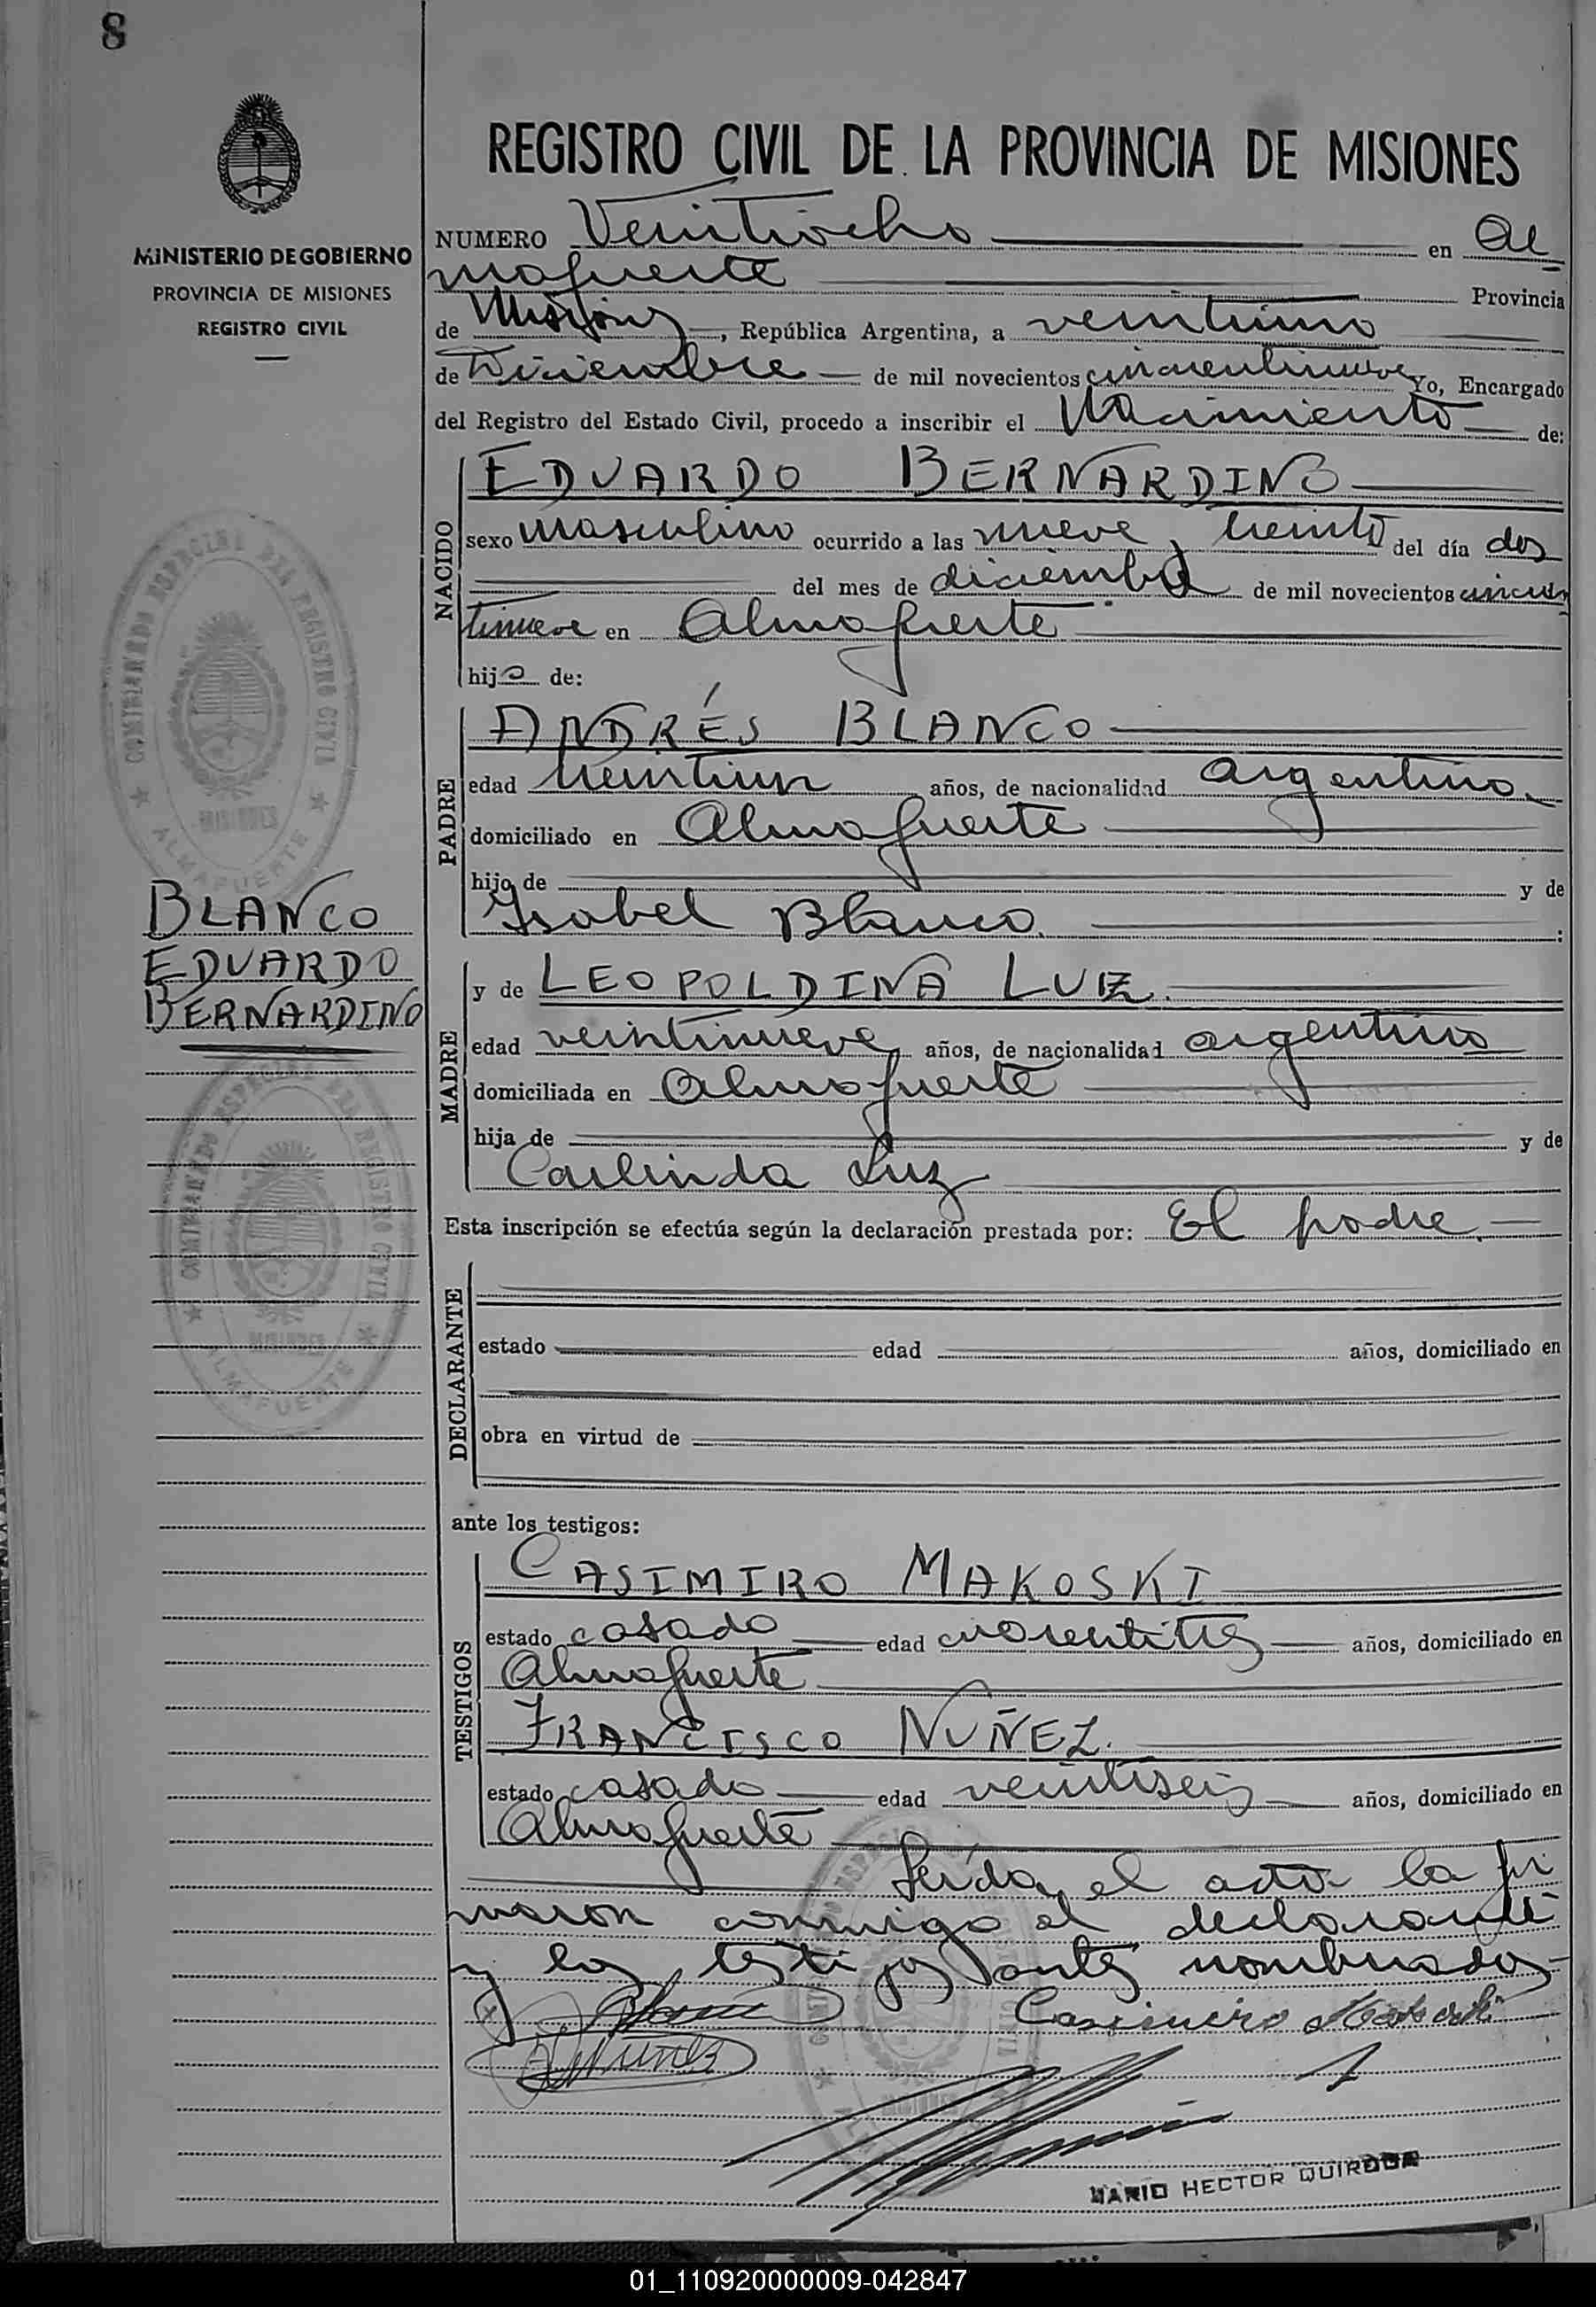 8
MINISTERIO DE GOBIERNO
PROVINCIA DE MISIONES
REGISTRO CIVIL
REGISTRO CIVIL DE LA PROVINCIA DE MISIONES
NUMERO Veintiocho en Al
mafuerte Provincia
de Misiones, República Argentina, a veintiuno
de Diciembre de mil novecientos cincuentinueve Yo, Encargado
del Registro del Estado Civil, procedo a inscribir el Nacimiento de:
NACIDO
EDUARDO BERNARDINO
sexo masculino ocurrido a las nueve y treinta del día dos
del mes de diciembre de mil novecientos cincuen
tinueve en Almafuerte
hijo de:
PADRE
ANDRÉS BLANCO
edad treintiun años, de nacionalidad argentino
domiciliado en Almafuerte
hijo de y de
Isabel Blanco.
MADRE
y de LEOPOLDINA LUZ.
edad veintinueve años, de nacionalidad argentina
domiciliada en Almafuerte
hija de y de
Carlinda Luz
Esta inscripción se efectúa según la declaración prestada por: El padre.
DECLARANTE
estado edad años, domiciliado en
obra en virtud de
ante los testigos:
TESTIGOS
CASIMIRO MAKOSKI
estado casado edad cuarentitres años, domiciliado en
Almafuerte
FRANCISCO NUÑEZ.
estado casado edad veintiseis años, domiciliado en
Almafuerte
Leída el acta la fir
maron conmigo el declarante
y los testigos antes nombrados
Casimiro
Nuñez
MARIO HECTOR QUIROGA
BLANCO
EDUARDO
BERNARDINO
COMISIONADO ESPECIAL DEL REGISTRO CIVIL
MISIONES
ALMAFUERTE
COMISIONADO ESPECIAL DEL REGISTRO CIVIL
MISIONES
ALMAFUERTE
01_110920000009-042847